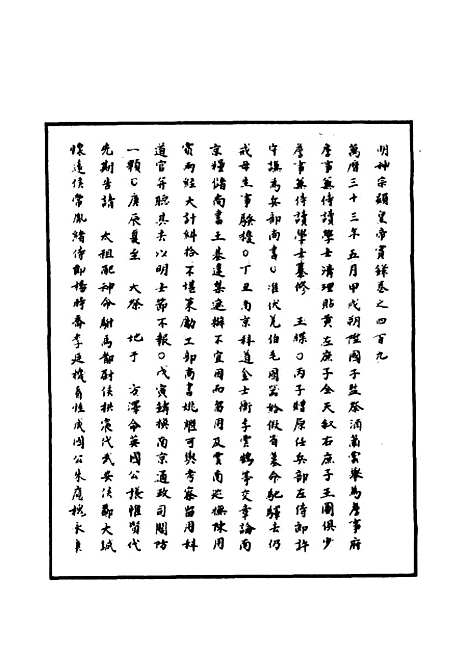 明神宗顯皇帝實錄卷之四百九
萬曆三十三年五月甲戌朔陞國子監祭酒蕭雲舉為詹事府
詹事兼侍讀學士清理貼黃左庶子全天叙右庶子王圖俱少
詹事兼侍讀學士纂修 玉牒○丙子贈原任兵部左侍郎許
守謙為兵部尚書○准伏羌伯毛國器給假省墓命馳驛去仍
戒毋生事騷擾○丁丑南京科道金士衡李雲鵠等交章論南
京糧儲尚書王基邊集遮辦不宜用而留用及雲南巡撫陳用
賓兩經大計糾拾不堪策勵工部尚書姚繼可與考察留用科
道官并聽其去以明士節不報○戊寅鑄換南京通政司關防
一顆○庚辰夏至 大祭 地于 方澤命英國公張惟賢代
先期告請 太祖配神命駙馬都尉侯拱宸代武安侯鄭大誠
懷遠侯常胤緒侍郎楊時喬李廷機看牲成國公朱應槐永貞